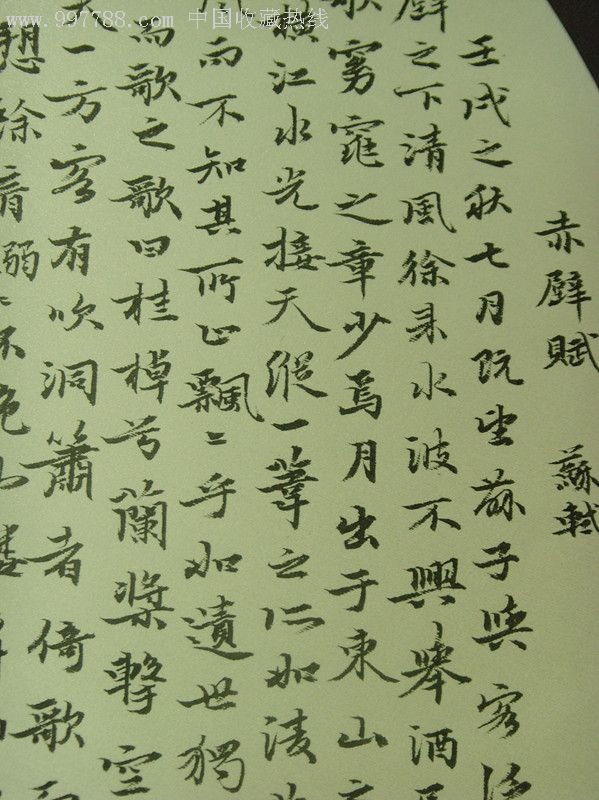 www.997788.com 中国收藏热线
赤壁賦 蘇軾
壬戌之秋七月既望蘇子與客
壁之下清風徐来水波不興舉酒
歌窈窕之章少焉月出于東山之
横江水光接天縱一葦之所如凌
而不知其所止飄〻乎如遺世獨
而歌之歌曰桂棹兮蘭槳擊空
一方客有吹洞簫者倚歌
音嫋〻不絶